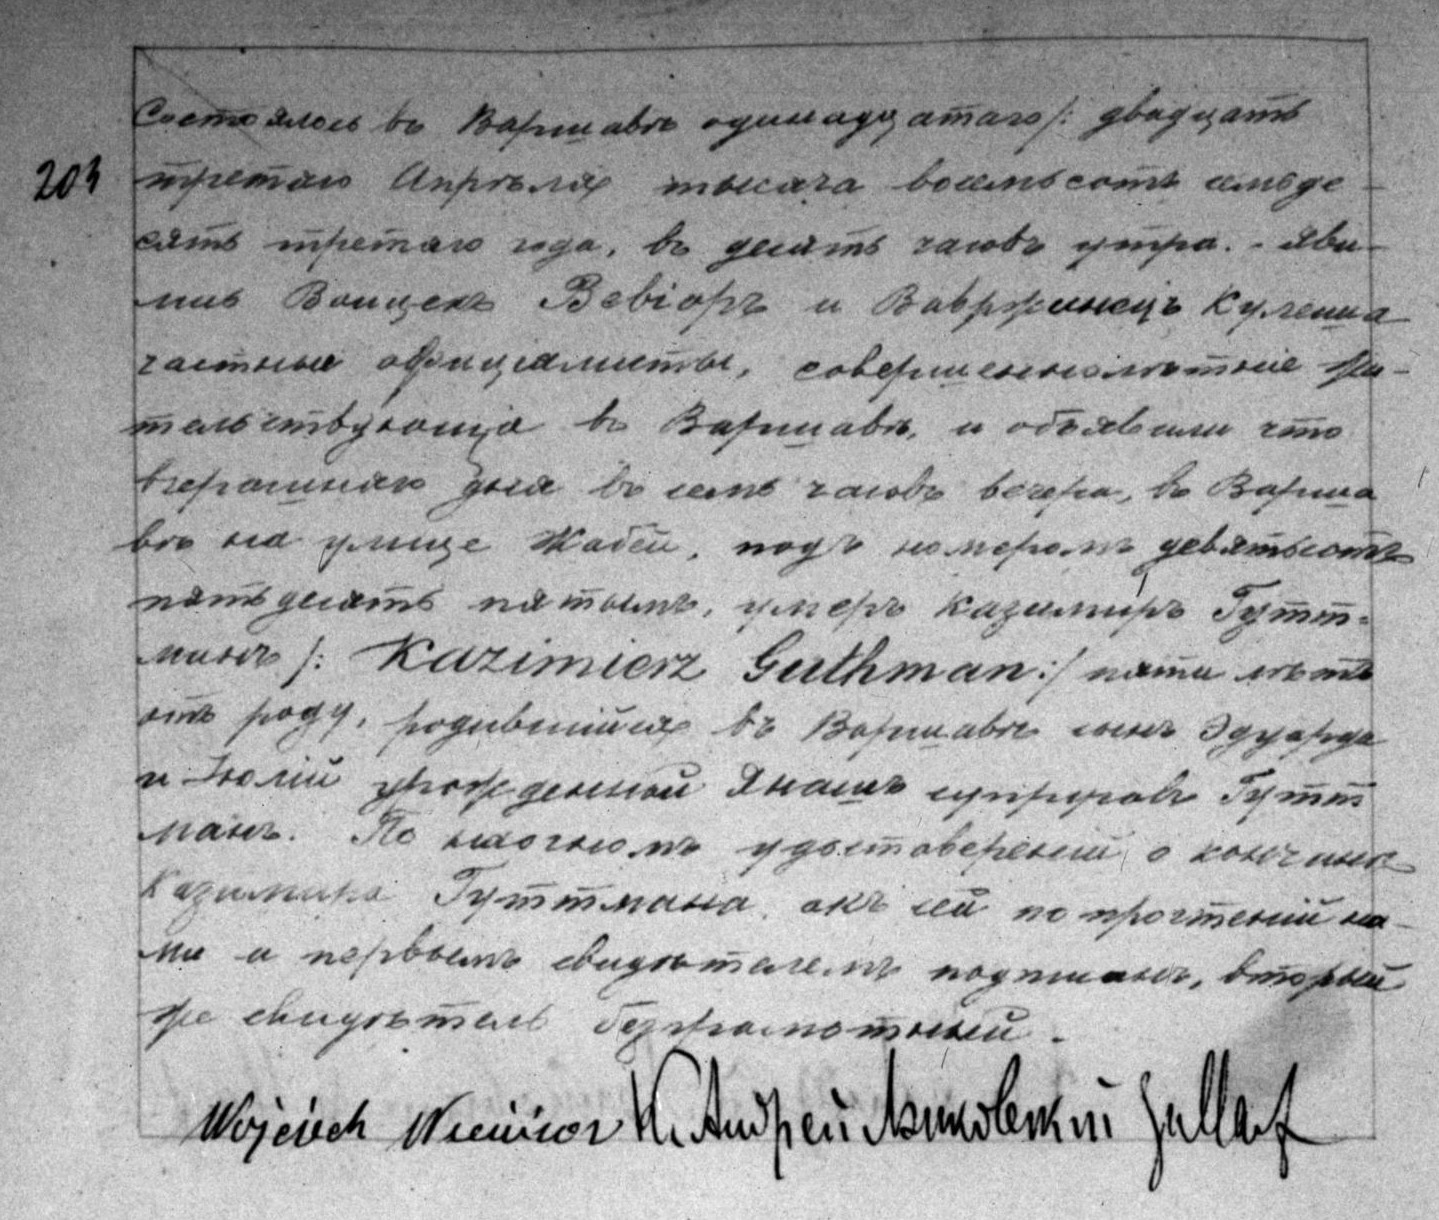 203
Состоялось въ Варшавѣ одинадцатаго /: двадцать
третяго Апрѣля тысяча восемьсотъ семьде-
сять третяго года, въ десять часовъ утра. - Яви-
лись Войцехъ Вевіоръ и Вавржинецъ Кулеша
частные офиціалисты, совершеннолѣтніе жи-
тельствующіе въ Варшавѣ, и объявили что
вчерашняго дня въ семь часовъ вечера, въ Варша
вѣ на улице Жабей, подъ номеромъ девятьсотъ
пятьдесятъ пятымъ, умеръ Казимиръ Гутт-
манъ /: Kazimierz Guthman :/ пяти лѣтъ
отъ роду, родившійся въ Варшавѣ сынъ Эдуарда
и Юлій урожденной Янашъ супруговъ Гутт
манъ. По удостовереній о кончине
Казимира Гуттмана, актъ сей по прочтеній на-
ми и первымъ свидѣтелемъ подписанъ, вторый
же свидѣтель безграмотный.
Wojciech Wiewior К. Андрей